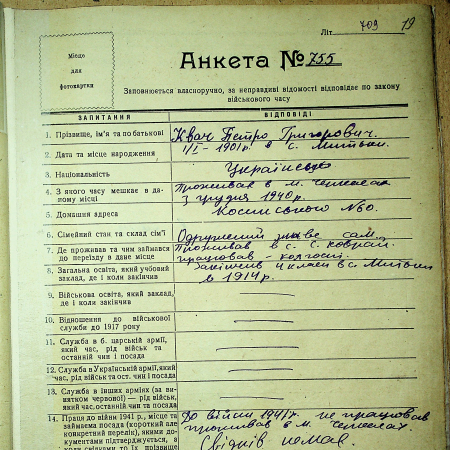 Літ 709 19
Місце
для
фотокартки
Анкета № 755
Заповнюється власноручно, за неправдиві відомості відповідає по закону
військового часу
ЗАПИТАННЯ ВІДПОВІДІ
1. Прізвище, ім'я та по батькові Квач Петро Григорович.
2. Дата та місце народження 1/I - 1901 р. в с. Митьки.
3. Національність Українець
4. З якого часу мешкає в даному місці Проживав в м. Черкасах
з грудня 1940р.
5. Домашня адреса №60.
6. Сімейний стан та склад сім'ї Одружений живе сам.
7. Де проживав та чим займався Проживав в с.
до переїзду в дане місце працював - колгоспі.
8. Загальна освіта, який учбовий Закінчив 4 класи в с. Митьки
заклад, де і коли закінчив в 1914 р.
9. Військова освіта, який заклад,
де і коли закінчив
10. Відношення до військової
служби до 1917 року
11. Служба в б. царській армії,
який час, рід військ та
останній чин і посада
12. Служба в Українській армії, який
час, рід військ та ост. чин і посада
13. Служба в інших арміях (за винятком червоної) — рід військ,
який час, останній чин та посада
14. Праця до війни 1941 р., місце та До війни 1941 р. не працював
займаєма посада (короткий але проживав в м. Черкасах
конкретний перелік), якими документами підтверджується, а Свідків немає.